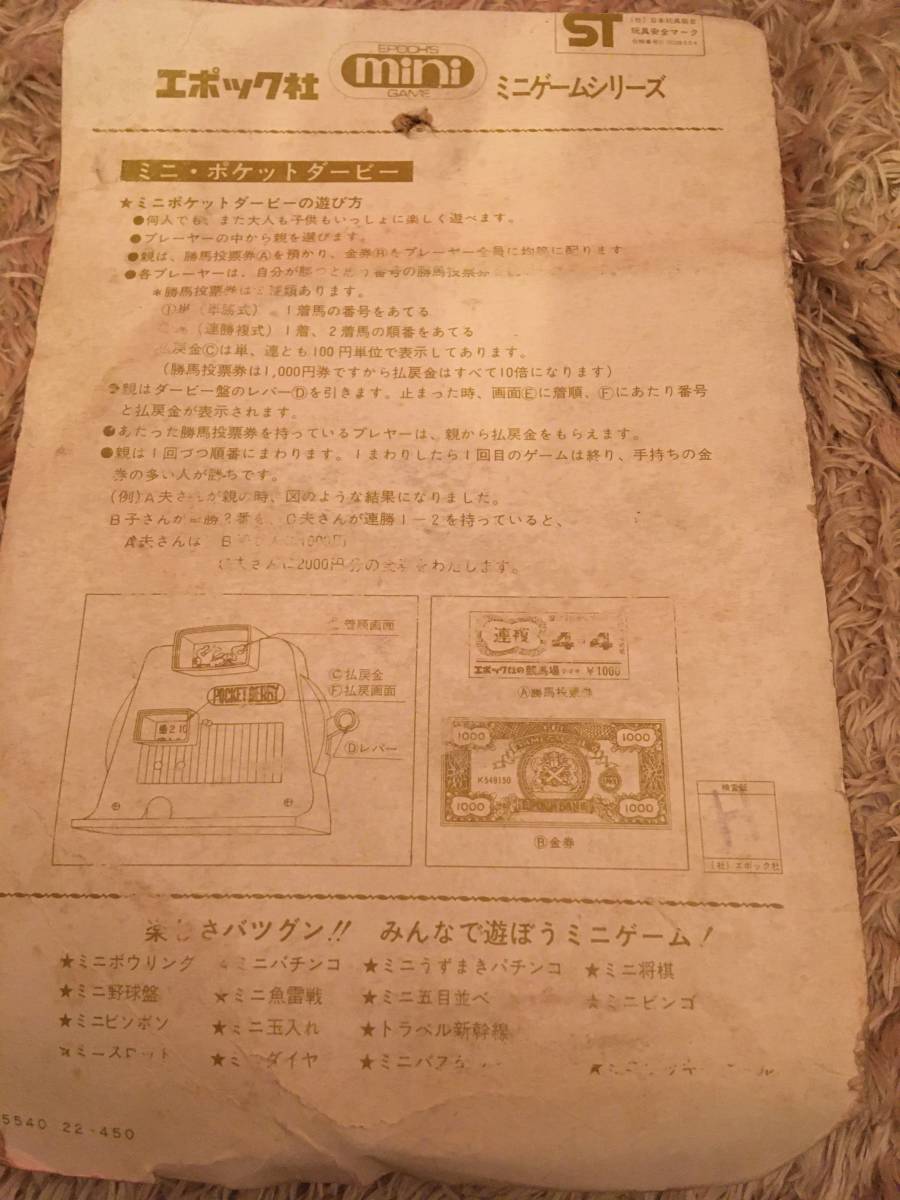 ST
(社)日本玩具協会
玩具安全マーク
エポック社
EPOCH'S
mini
GAME
ミニゲームシリーズ
ミニ・ポケットダービー
★ミニポケットダービーの遊び方
●何人でも、また大人も子供もいっしょに楽しく遊べます。
●プレーヤーの中から親を選びます。
●親は、勝馬投票券Ⓐを預かり、金券Ⓑをプレーヤー全員に均等に配ります
●各プレーヤーは、自分が勝つと思う番号の勝馬投票券
*勝馬投票券は 種類あります。
①単(単勝式) 1着馬の番号をあてる
(連勝複式) 1着、2着馬の順番をあてる
払戻金Ⓒは単、連とも100円単位で表示してあります。
(勝馬投票券は1,000円券ですから払戻金はすべて10倍になります)
●親はダービー盤のレバーⒹを引きます。止まった時、画面Ⓔに着順、Ⓕにあたり番号
と払戻金が表示されます。
●あたった勝馬投票券を持っているプレヤーは、親から払戻金をもらえます。
●親は1回づつ順番にまわります。1まわりしたら1回目のゲームは終り、手持ちの金
券の多い人が勝ちです。
(例)A夫さんが親の時、図のような結果になりました。
B子さんが 勝 番を、C夫さんが連勝1-2を持っていると、
A夫さんは B
夫さんに2000円分の をわたします。
着順画面
Ⓒ払戻金
Ⓕ払戻画面
POCKET DERBY
Ⓓレバー
連複 4-4
エポック社の競馬場 ¥1000
Ⓐ勝馬投票券
1000
1000
K548150
1000
EPOCH BANK
1000
Ⓑ金券
検査証
(社)エポック社
楽しさバツグン!! みんなで遊ぼうミニゲーム!
★ミニボウリング ミニパチンコ ★ミニうずまきパチンコ ★ミニ将棋
★ミニ野球盤 ★ミニ魚雷戦 ★ミニ五目並べ ★ミニビンゴ
★ミニピンポン ★ミニ玉入れ ★トラベル新幹線
★ミニスロット ★ミニダイヤ
5540 22-450